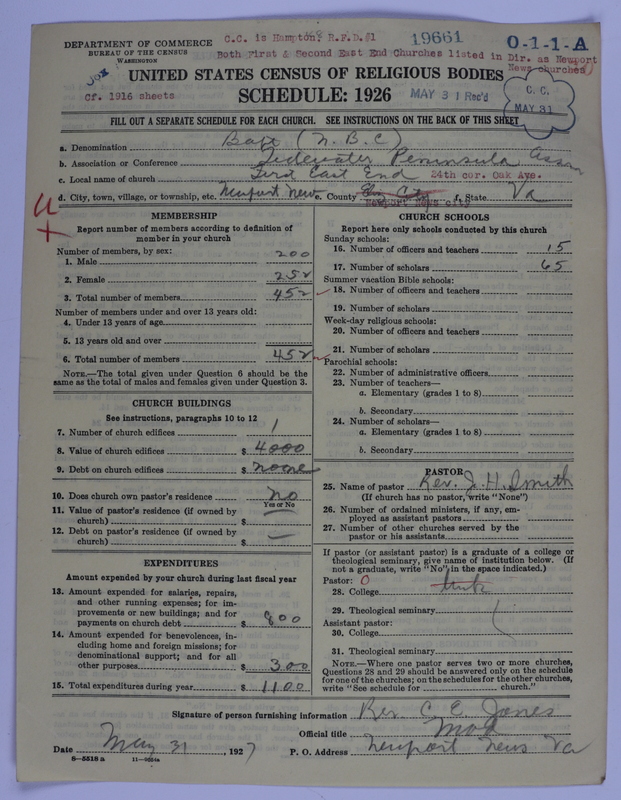 DEPARTMENT OF COMMERCE
BUREAU OF THE CENSUS
WASHINGTON
C.C. is Hampton, R.F.D.#1
19661
O-1-1-A
Both First & Second East End Churches listed in Dir. as Newport
News churches)
UNITED STATES CENSUS OF RELIGIOUS BODIES
Cf. 1916 sheets
SCHEDULE: 1926
MAY 31 Rec'd
C. C.
MAY 31
FILL OUT A SEPARATE SCHEDULE FOR EACH CHURCH. SEE INSTRUCTIONS ON THE BACK OF THIS SHEET
a. Denomination Bapt (N. B. C)
b. Association or Conference Tidewater Peninsula Assn
c. Local name of church First East End 24th cor. Oak Ave.
d. City, town, village, or township, etc. Newport News e. County Newport News city f. State Va
MEMBERSHIP
Report number of members according to definition of
member in your church
Number of members, by sex:
1. Male 200
2. Female 252
3. Total number of members 452
Number of members under and over 13 years old:
4. Under 13 years of age
5. 13 years old and over
6. Total number of members 452
NOTE.—The total given under Question 6 should be
same as the total of males and females given under Question 3.
CHURCH BUILDINGS
See instructions, paragraphs 10 to 12
7. Number of church edifices 1
8. Value of church edifices $ 4000
9. Debt on church edifices $ none
10. Does church own pastor's residence no
Yes or No
11. Value of pastor's residence (if owned by
church) $ —
12. Debt on pastor's residence (if owned by
church) $ —
EXPENDITURES
Amount expended by your church during last fiscal year
13. Amount expended for salaries, repairs,
and other running expenses; for im-
provements or new buildings; and for
payments on church debt $ 800
14. Amount expended for benevolences, in-
cluding home and foreign missions; for
denominational support; and for all
other purposes $ 300
15. Total expenditures during year $ 1100
CHURCH SCHOOLS
Report here only schools conducted by this church
Sunday schools:
16. Number of officers and teachers 15
17. Number of scholars 65
Summer vacation Bible schools:
18. Number of officers and teachers
19. Number of scholars
Week-day religious schools:
20. Number of officers and teachers
21. Number of scholars
Parochial schools:
22. Number of administrative officers
23. Number of teachers—
a. Elementary (grades 1 to 8)
b. Secondary
24. Number of scholars—
a. Elementary (grades 1 to 8)
b. Secondary
PASTOR
25. Name of pastor Rev. J. H. Smith
(If church has no pastor, write "None")
26. Number of ordained ministers, if any, em-
ployed as assistant pastors
27. Number of other churches served by the
pastor or his assistants
If pastor (or assistant pastor) is a graduate of a college or
theological seminary, give name of institution below. (If
not a graduate, write "No" in the space indicated.)
Pastor: 0
28. College
29. Theological seminary
Assistant pastor:
30. College
31. Theological seminary
NOTE.—Where one pastor serves two or more churches,
Questions 28 and 29 should be answered only on the schedule
for one of the churches; on the schedules for the other churches,
write "See schedule for church."
Signature of person furnishing information Rev. C. E. Jones
Official title Mod
Date May 31, 1927 P. O. Address Newport News Va
8—5518 a 11—9034a